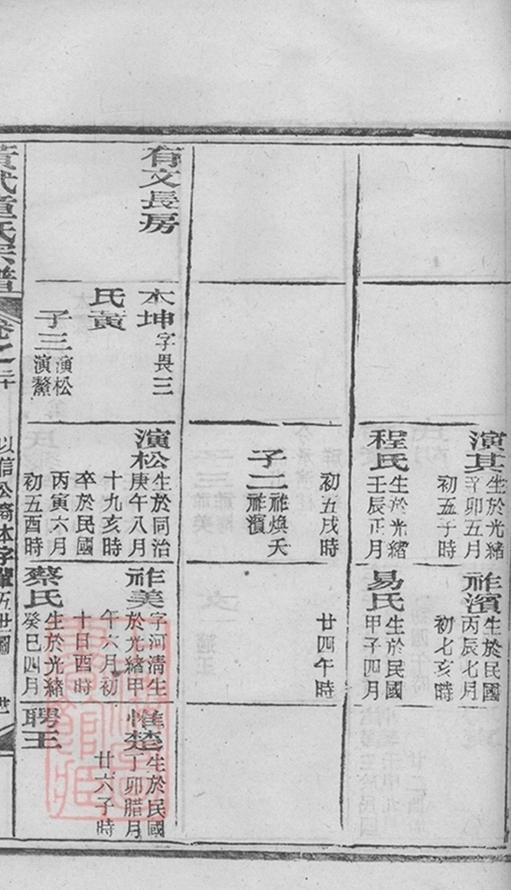 演其生於光緒
辛卯五月
初五子時
程氏生於光緒
壬辰正月
初五戌時
子二祚煥夭
祚濱
祚濱生於民國
丙辰七月
初七亥時
易氏生於民國
甲子四月
廿四午時
有文長房
木坤字畏三
氏黃
子三演松
演鰲
演松生於同治
庚午八月
十九亥時
卒於民國
丙寅六月
初五酉時
祚美字河清生
於光緒甲
午六月初
十日酉時
蔡氏生於光緒
癸巳四月
惟楚生於民國
丁卯腊月
廿六子時
聘王
童氏宗譜
卷之二十
以信公裔本字
五世圖